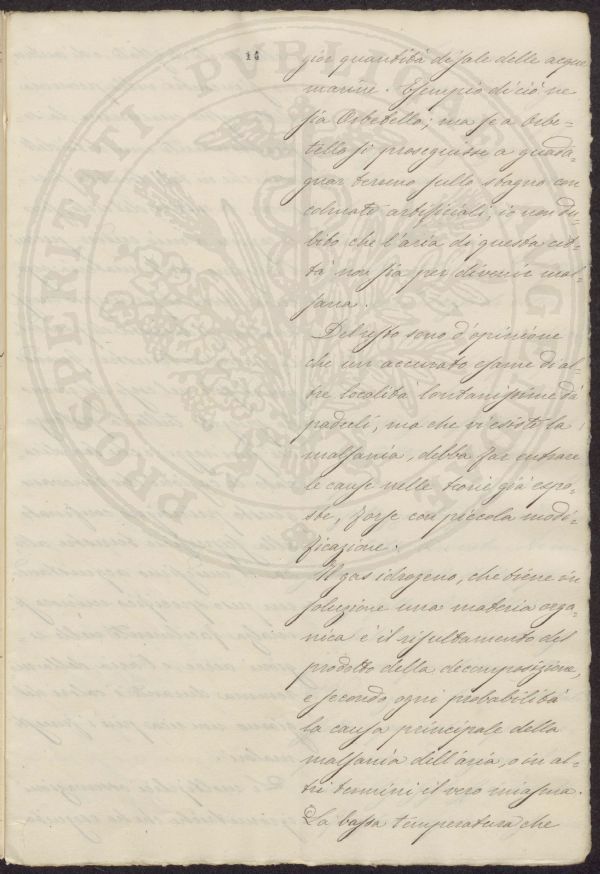 14
gior quantità di sale delle acque
marine. Esempio di ciò ne
sia Orbetello; ma se a Orbe-
tello si proseguisse a guada-
gnar terreno sullo stagno con
colmate artificiali, io non du-
bito che l'aria di questa cit-
tà non sia per divenir mal-
sana.
Del resto sono d'opinione
che un accurato esame di al-
tre località lontanissime da
paduli, ma che vi esiste la
malsania, debba far entrare
le cause nelle teorie già espo-
ste, forse con piccola modi-
ficazione.
Il gas idrogeno, che tiene in
soluzione una materia orga-
nica è il risultamento del
prodotto della decomposizione,
e secondo ogni probabilità
la causa principale della
malsania dell'aria, o in al-
tri termini il vero miasma.
La bassa temperatura che
PROSPERITATI PVBLICAE